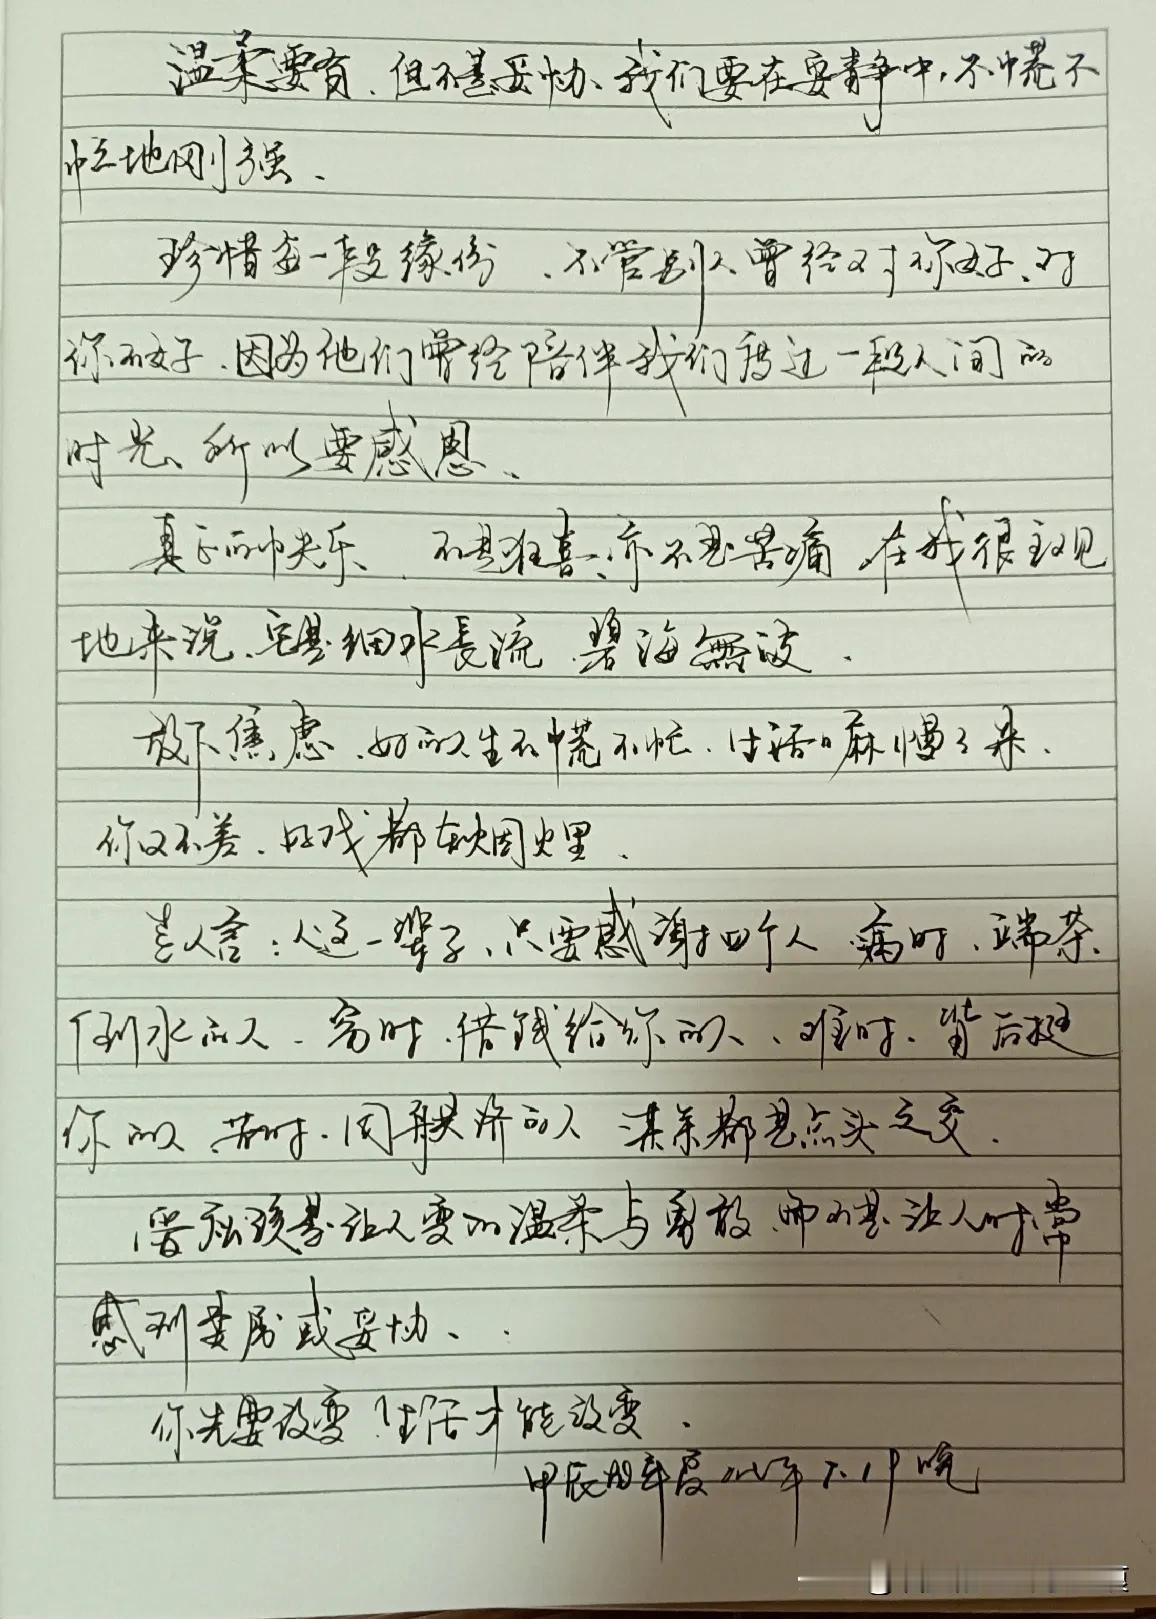 温柔要有、但不是妥协、我们要在安静中,不慌不
忙地刚强、
珍惜每一段缘份、不管别人曾经对你好、对
你不好、因为他们曾经陪伴我们度过一段人间的
时光、所以要感恩、
真正的快乐、不是狂喜、亦不是苦痛、在我很主观
地来说、它是细水長流、碧海無波、
放下焦虑、好的人生不慌不忙、生活嘛慢慢来、
你又不差、好戏都在烟火里、
老人言:人这一辈子、只要感谢四个人 病时、端茶、
倒水的人、穷时、借钱给你的人、难时、背后挺
你的人 苦时、同舟共济的人 其余都是点头之交、
应该是让人变的温柔与勇敢、而不是让人时常
感到委屈或妥协、
你先要改变 生活才能改变、
甲辰 年夏 晚